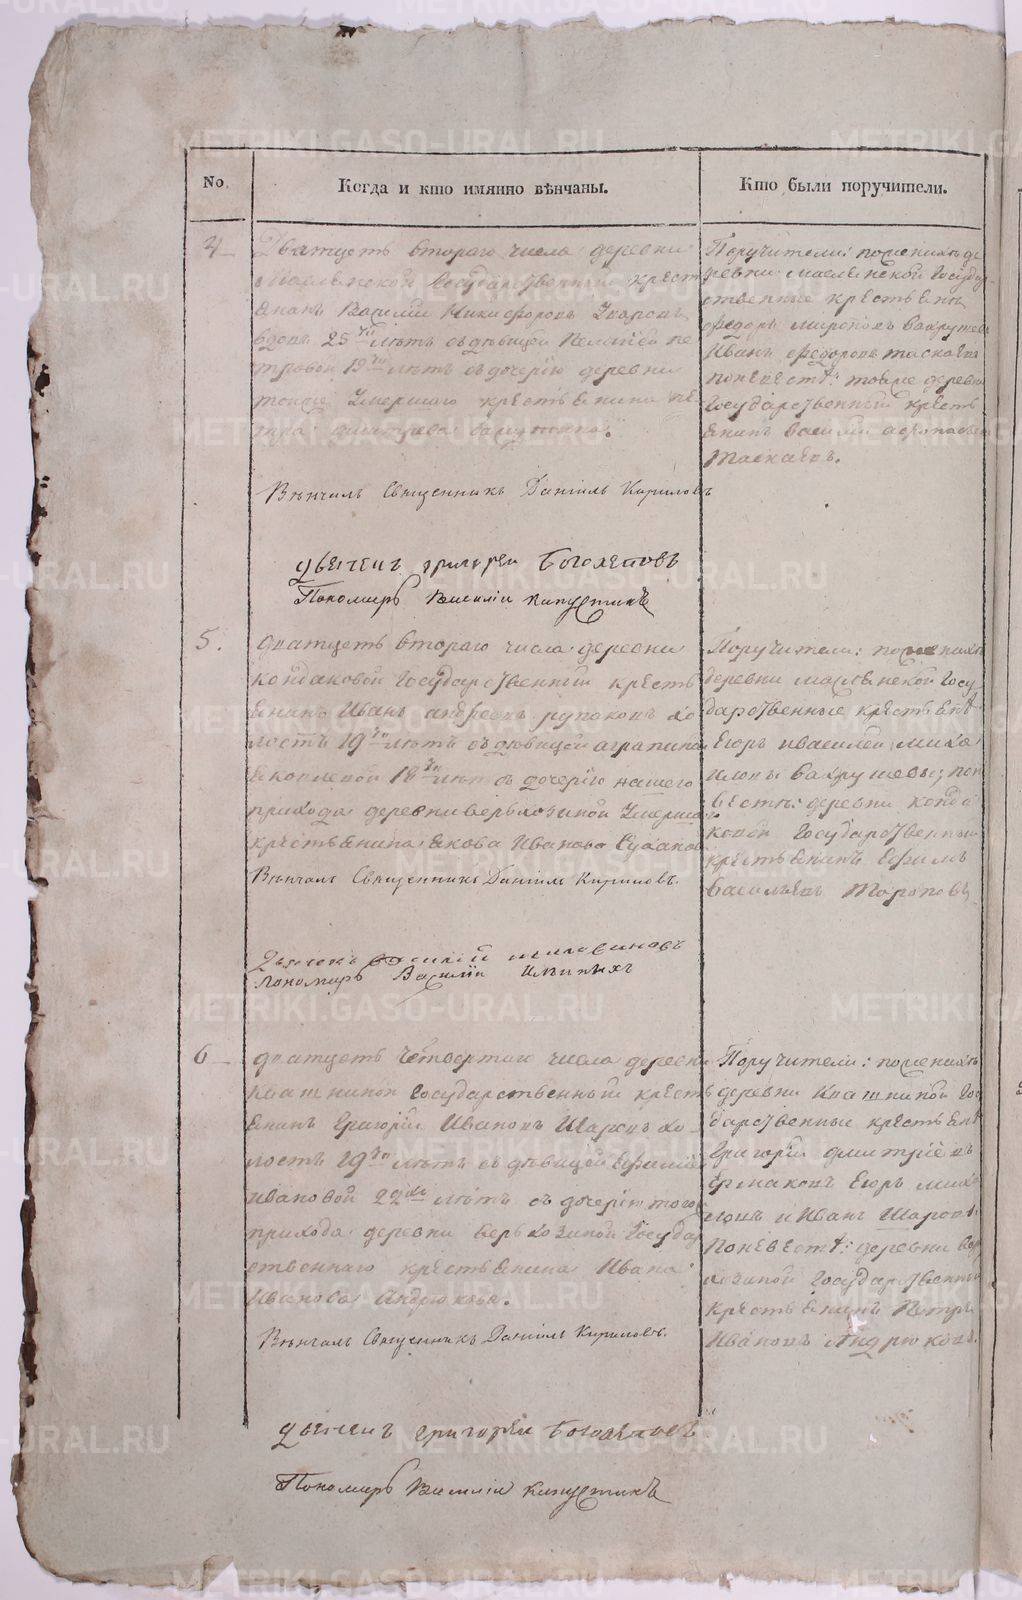 No.
Когда и кто имянно вѣнчаны.
Кто были поручители.
4
Дватцеть втораго числа деревни
Маслѣнской Государственный крест
янинъ Василий Никифоровъ
вдовъ 25 лѣтъ съ дѣвицей Пелагiей пе
тровой 19 лѣтъ съ дочерiю деревни
тойже умершаго крестьянина пе
тра
Вѣнчалъ Священникъ Данiилъ Кириловъ
дьячекъ григорей Боголеповъ
Пономарь Василiй Капустинъ
Поручители: поженихѣ де
ревни маслѣнской Госуда
рственные крестьянѣ
федоръ мироновъ Вахрушевъ
Иванъ федоровъ таскаевъ
поневестѣ: тойже деревни
Государственный кресть
янинъ василий
Таскаевъ.
5.
дватцеть втораго числа деревни
Кондаковой Государственный кресть
янинъ Иванъ андреевъ хо
лостъ 19 лѣтъ съ дѣвицей агрипиной
18 лѣтъ съ дочерiю нашего
прихода деревни верьхозиной умерша
крестьянина якова Иванова
Вѣнчалъ Священникъ Данiилъ Кириловъ.
Дьячекъ василiй
Пономарь Василiй Ильиныхъ
Поручители: поженихѣ
деревни маслѣнской Госу
дарственные крестьянѣ
Егоръ ивасилей миха
иловы Вахрушевы; поне
вестѣ: деревни конда
ковой Государственный
крестьянинъ Ефимъ
васильевъ Тороповъ
6
дватцеть четвертаго числа деревни
Квашниной Государственный кресть
янинъ Григорiй Ивановъ Шаровъ хо
лостъ 19 лѣтъ съ дѣвицей Ефимiей
Ивановой 22 лѣтъ съ дочерiю того
прихода деревни верьхозиной Государ
ственнаго крестьянина Ивана
Иванова Андрюкова.
Вѣнчалъ Священникъ Данiилъ Кириловъ.
дьячекъ григорей Боголеповъ
Пономарь Василiй Капустинъ
Поручители: поженихѣ
деревни Квашниной Госу
дарственные крестьянѣ
Григорiй дмитрiевъ
Ермаковъ Егоръ миха
ловъ и Иванъ Шаровы
Поневестѣ: деревни вер
хозиной Государственный
крестьянинъ Петръ
Ивановъ Андрюковъ.
METRIKI.GASO-URAL.RU